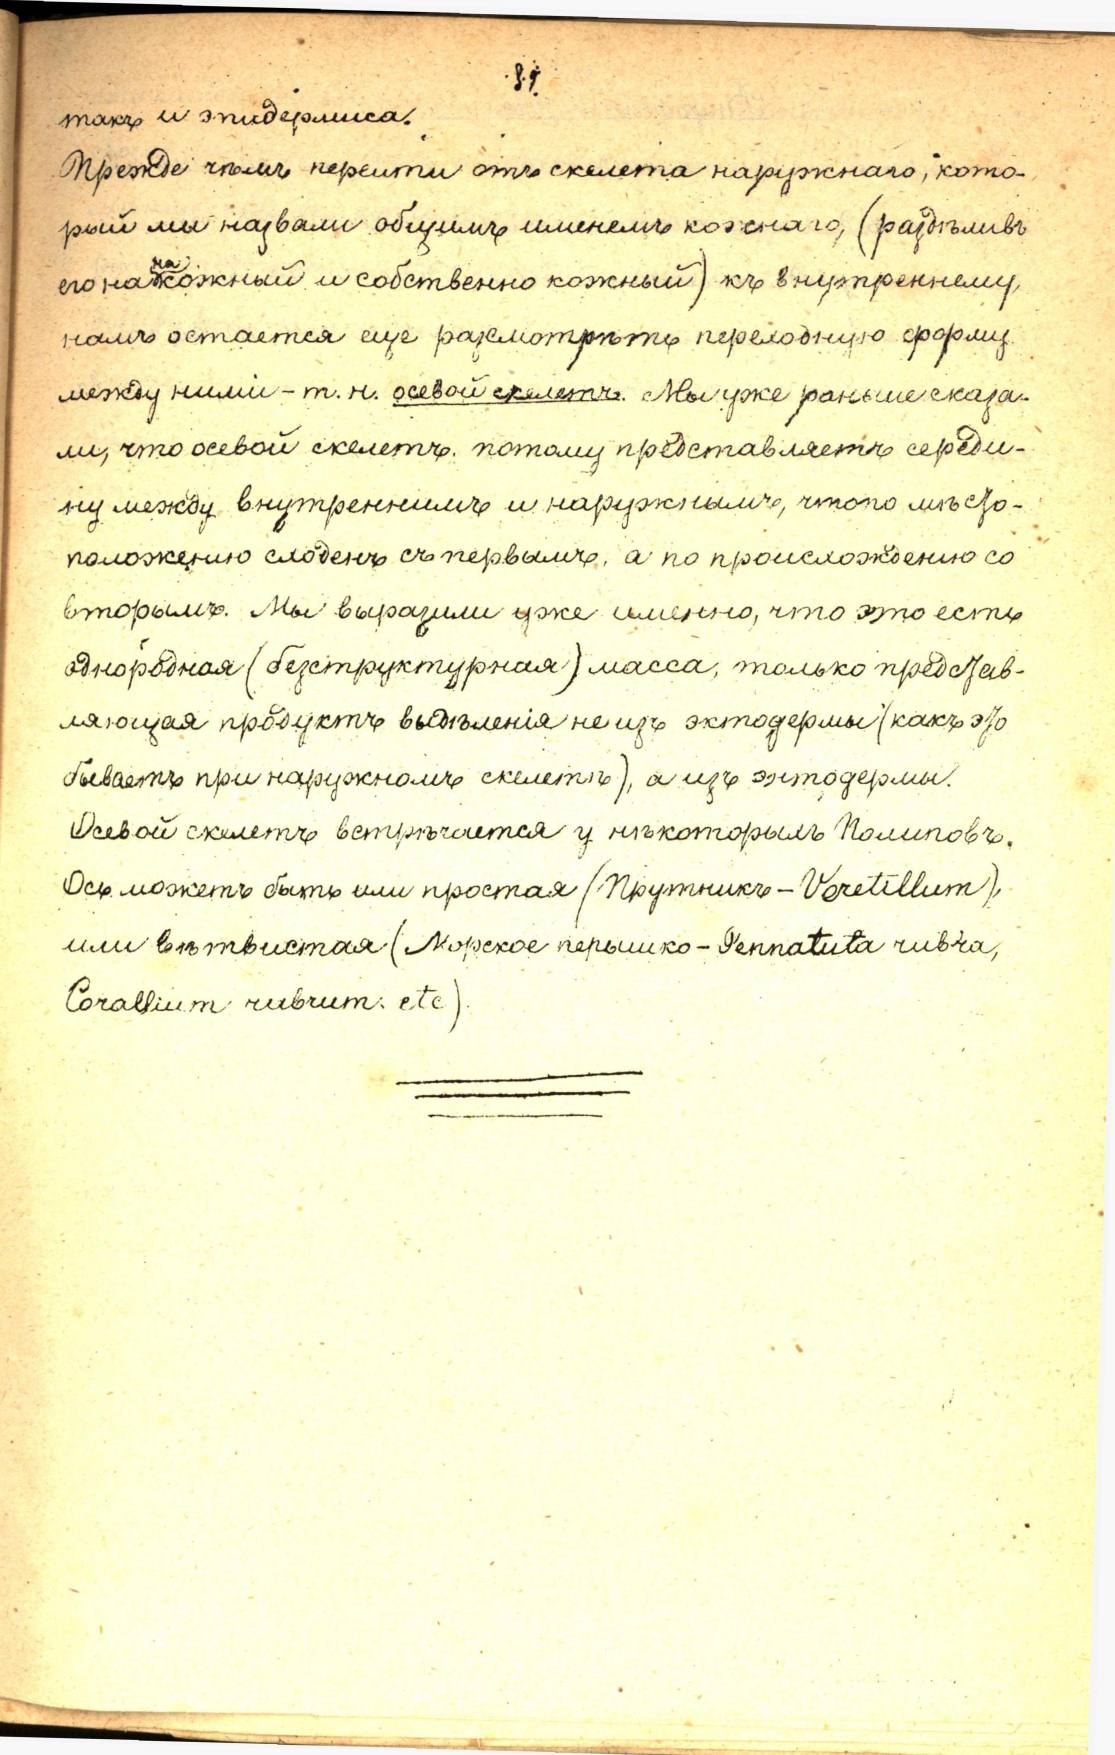 81.
такъ и эпидермиса.
Прежде чѣмъ перейти отъ скелета наружнаго, кото-
рый мы назвали общимъ именемъ кожнаго, (раздѣливъ
его на накожный и собственно кожный) къ внутреннему,
намъ остается еще разсмотрѣть переходную форму
между ними – т. н. осевой скелетъ. Мы уже раньше сказа-
ли, что осевой скелетъ потому представляетъ середи-
ну между внутреннимъ и наружнымъ, что по мѣсто-
положению сходенъ съ первымъ, а по происхождению со
вторымъ. Мы выразили уже именно, что это есть
однородная (безструктурная) масса, только представ-
ляющая продуктъ выдѣленія не изъ эктодермы (какъ это
бываетъ при наружномъ скелетѣ), а изъ энтодермы.
Осевой скелетъ встрѣчается у нѣкоторыхъ Полиповъ.
Ось можетъ быть или простая (Прутникъ – Veretillum),
или вѣтвистая (Морское перышко – Pennatula rubra,
Corallium rubrum. etc).